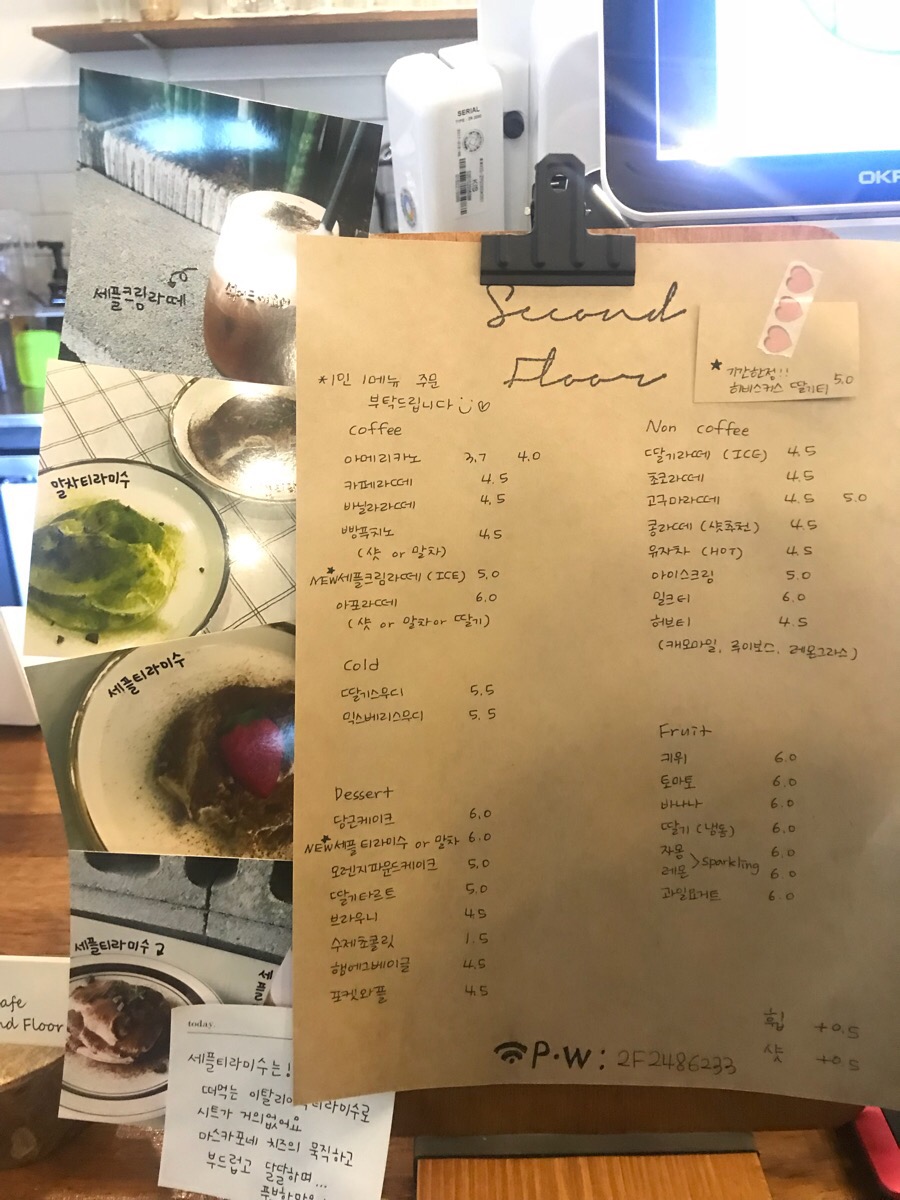 SERIAL
OKP
세플크림라떼
말차티라미수
세플티라미수
세플티라미수
Second
Floor
*1인 1메뉴 주문
부탁드립니다
★기간한정!!
히비스커스 딸기티 5.0
Coffee
아메리카노 3.7 4.0
카페라떼 4.5
바닐라라떼 4.5
빵푸치노 4.5
(샷 or 말차)
NEW 세플크림라떼 (ICE) 5.0
아포라떼 6.0
(샷 or 말차 or 딸기)
Cold
딸기스무디 5.5
믹스베리스무디 5.5
Dessert
당근케이크 6.0
NEW 세플티라미수 or 말차 6.0
오렌지파운드케이크 5.0
딸기타르트 5.0
브라우니 4.5
수제초콜릿 1.5
햄에그베이글 4.5
포켓와플 4.5
Non coffee
딸기라떼 (ICE) 4.5
초코라떼 4.5
고구마라떼 4.5 5.0
콩라떼 (샷추천) 4.5
유자차 (HOT) 4.5
아이스크림 5.0
밀크티 6.0
허브티 4.5
(캐모마일, 루이보스, 레몬그라스)
Fruit
키위 6.0
토마토 6.0
바나나 6.0
딸기 (냉동) 6.0
자몽 6.0
레몬 > sparkling 6.0
과일요거트 6.0
휩 +0.5
샷 +0.5
P.W: 2F2486233
afe
nd Floor
today
세플티라미수는!
떠먹는 이탈리아 티라미수로
시트가 거의없어요
마스카포네 치즈의 묵직하고
부드럽고 달달하며...